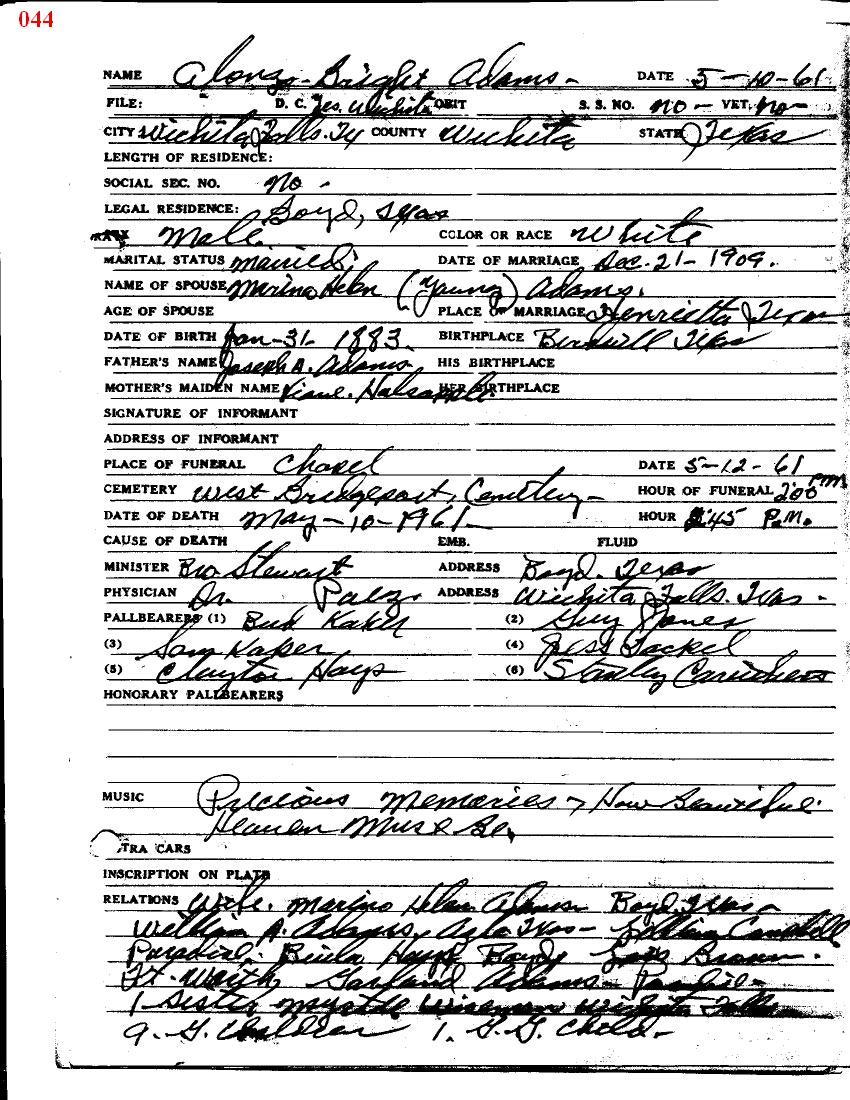 044
NAME Alonzo Bright Adams - DATE 5-10-61
FILE: D. C. Yes. Wichita OBIT S. S. NO. no - VET. no -
CITY Wichita Falls. Tx COUNTY Wichita STATE Texas
LENGTH OF RESIDENCE:
SOCIAL SEC. NO. no -
LEGAL RESIDENCE: Boyd, Texas
Male. COLOR OR RACE White
MARITAL STATUS married. DATE OF MARRIAGE Dec. 21 - 1909.
NAME OF SPOUSE Marina Helen (Young) Adams.
AGE OF SPOUSE PLACE OF MARRIAGE Henrietta, Texas
DATE OF BIRTH Jan-31- 1883. BIRTHPLACE Texas
FATHER'S NAME Joseph A. Adams. HIS BIRTHPLACE
MOTHER'S MAIDEN NAME HER BIRTHPLACE
SIGNATURE OF INFORMANT
ADDRESS OF INFORMANT
PLACE OF FUNERAL Chapel DATE 5-12-61
CEMETERY West Bridgeport, Cemetery - HOUR OF FUNERAL 2:00 PM
DATE OF DEATH May-10-1961- HOUR 45 P.M.
CAUSE OF DEATH EMB. FLUID
MINISTER Bro Stewart ADDRESS Boyd. Texas
PHYSICIAN Dr. ADDRESS Wichita Falls. Texas -
PALLBEARERS (1) Bud Kaker (2) Guy Jones
(3) Sam Kaker (4) Jess
(5) Clayton Hays (6) Stanley Caruthers
HONORARY PALLBEARERS
MUSIC Precious Memories - How Beautiful
Heaven Must Be.
TRA CARS
INSCRIPTION ON PLATE
RELATIONS Wife. Marina Helen Adams Boyd. Texas -
William A. Adams, Azle Texas - Campbell
Paradise. Beula Hays Boyd, Brown.
Ft. Worth, Garland Adams -
1 Sister Myrtle Wiseman Wichita Falls
9. G. Children 1. G. G. Child. -